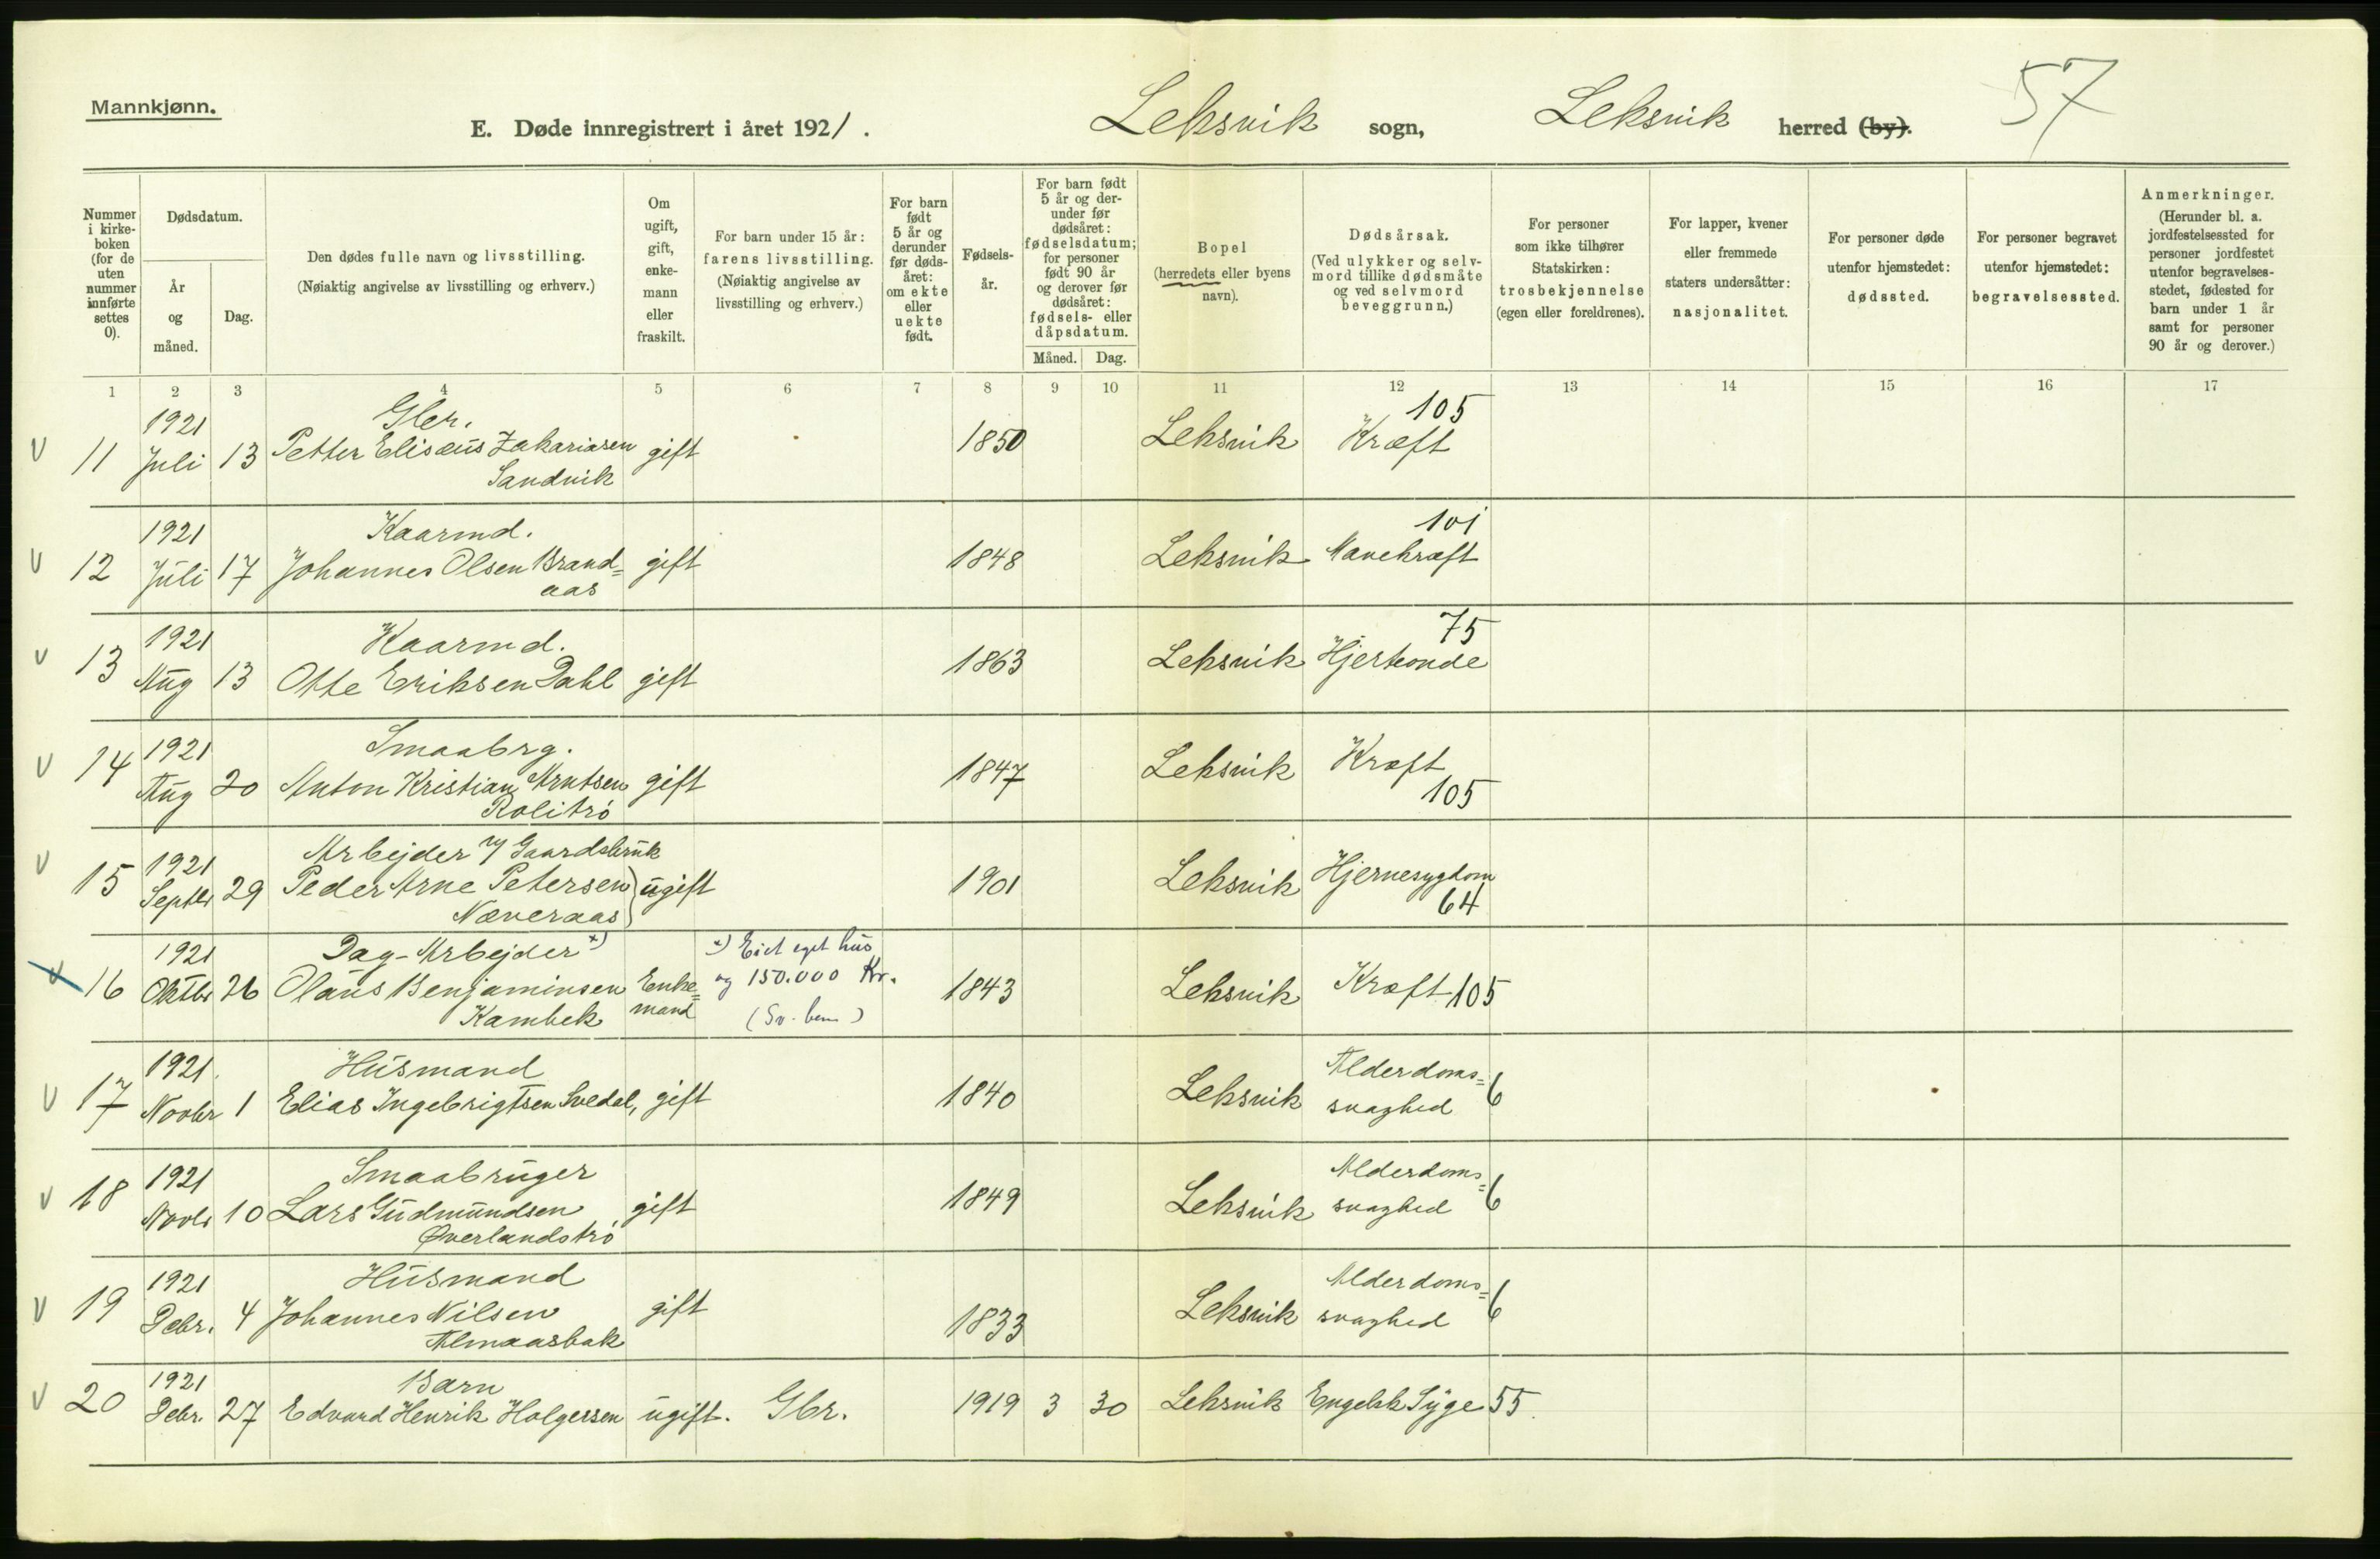 Mannkjønn.
E. Døde innregistrert i året 1921.
Leksvik sogn, Leksvik herred (by). 57
Nummer i kirkeboken (for de uten nummer innførte settes 0).
Dødsdatum.
År og måned.
Dag.
Den dødes fulle navn og livsstilling.
(Nøiaktig angivelse av livsstilling og erhverv.)
Om ugift, gift, enkemann eller fraskilt.
For barn under 15 år: farens livsstilling.
(Nøiaktig angivelse av livsstilling og erhverv.)
For barn født 5 år og derunder før dødsåret: om ekte eller uekte født.
Fødselsår.
For barn født 5 år og derunder før dødsåret: fødselsdatum; for personer født 90 år og derover før dødsåret: fødsels- eller dåpsdatum.
Måned. Dag.
Bopel
(herredets eller byens navn).
Dødsårsak.
(Ved ulykker og selvmord tillike dødsmåte og ved selvmord beveggrunn.)
For personer som ikke tilhører Statskirken: trosbekjennelse (egen eller foreldrenes).
For lapper, kvener eller fremmede staters undersåtter: nasjonalitet.
For personer døde utenfor hjemstedet: dødssted.
For personer begravet utenfor hjemstedet: begravelsessted.
Anmerkninger.
(Herunder bl. a. jordfestelsessted for personer jordfestet utenfor begravelsesstedet, fødested for barn under 1 år samt for personer 90 år og derover.)
1 2 3 4 5 6 7 8 9 10 11 12 13 14 15 16 17
1921 Gbr. 105
V 11 Juli 13 Petter Elisæus Zakariasen gift 1850 Leksvik Kræft
Sandvik
1921 Kaarmd. 101
V 12 Juli 17 Johannes Olsen Brand= gift 1848 Leksvik Mavekræft
aas
1921 Kaarmd. 75
V 13 Aug 13 Otte Eriksen Dahl gift 1863 Leksvik Hjerteonde
1921 Smaabrg.
V 14 Aug 20 Anton Kristian Arntsen gift 1847 Leksvik Kræft
Rolitrø 105
1921 Arbejder v/ Gaardsbruk
V 15 Septbr 29 Peder Arne Petersen ugift 1901 Leksvik Hjernesygdom
Næveraas 64
1921 Dag-Arbejder x) x) Eiet eget hus
V 16 Oktbr 26 Olaus Benjaminsen Enke= og 150.000 Kr. 1843 Leksvik Kræft 105
Kambek mand (Sv. bem)
1921 Husmand Alderdoms= 6
V 17 Novbr 1 Elias Ingebrigtsen Svedal, gift 1840 Leksvik svaghed
1921 Smaabruger Alderdoms= 6
V 18 Novbr 10 Lars Gudmundsen gift 1849 Leksvik svaghed
Øverlandstrø
1921 Husmand Alderdoms= 6
V 19 Debr. 4 Johannes Nilsen gift 1833 Leksvik svaghed
Almaasbak
1921 Barn
V 20 Debr. 27 Edvard Henrik Holgersen ugift. Gbr. 1919 3 30 Leksvik Engelsk Syge 55